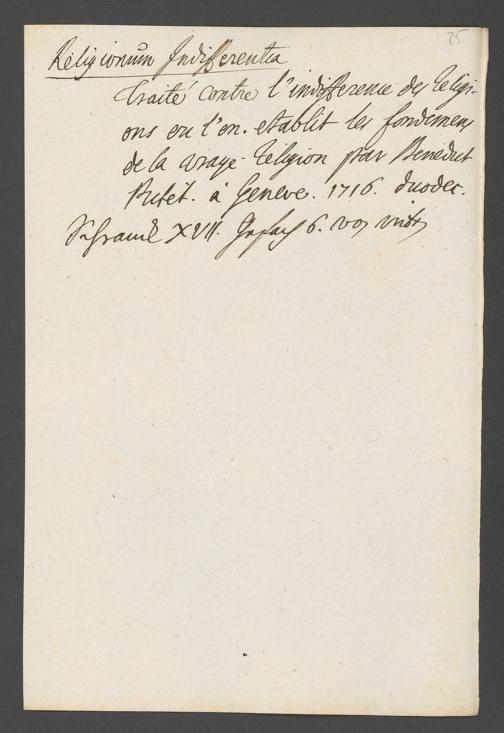 25
Religionum Indifferentia
Traité contre l'indifference des Religi-
ons ou l'on etablit les fondemens
de la vraye Religion par Benedict
Pictet. à Geneve. 1716. duodec.
Schranck XVII. 6. von